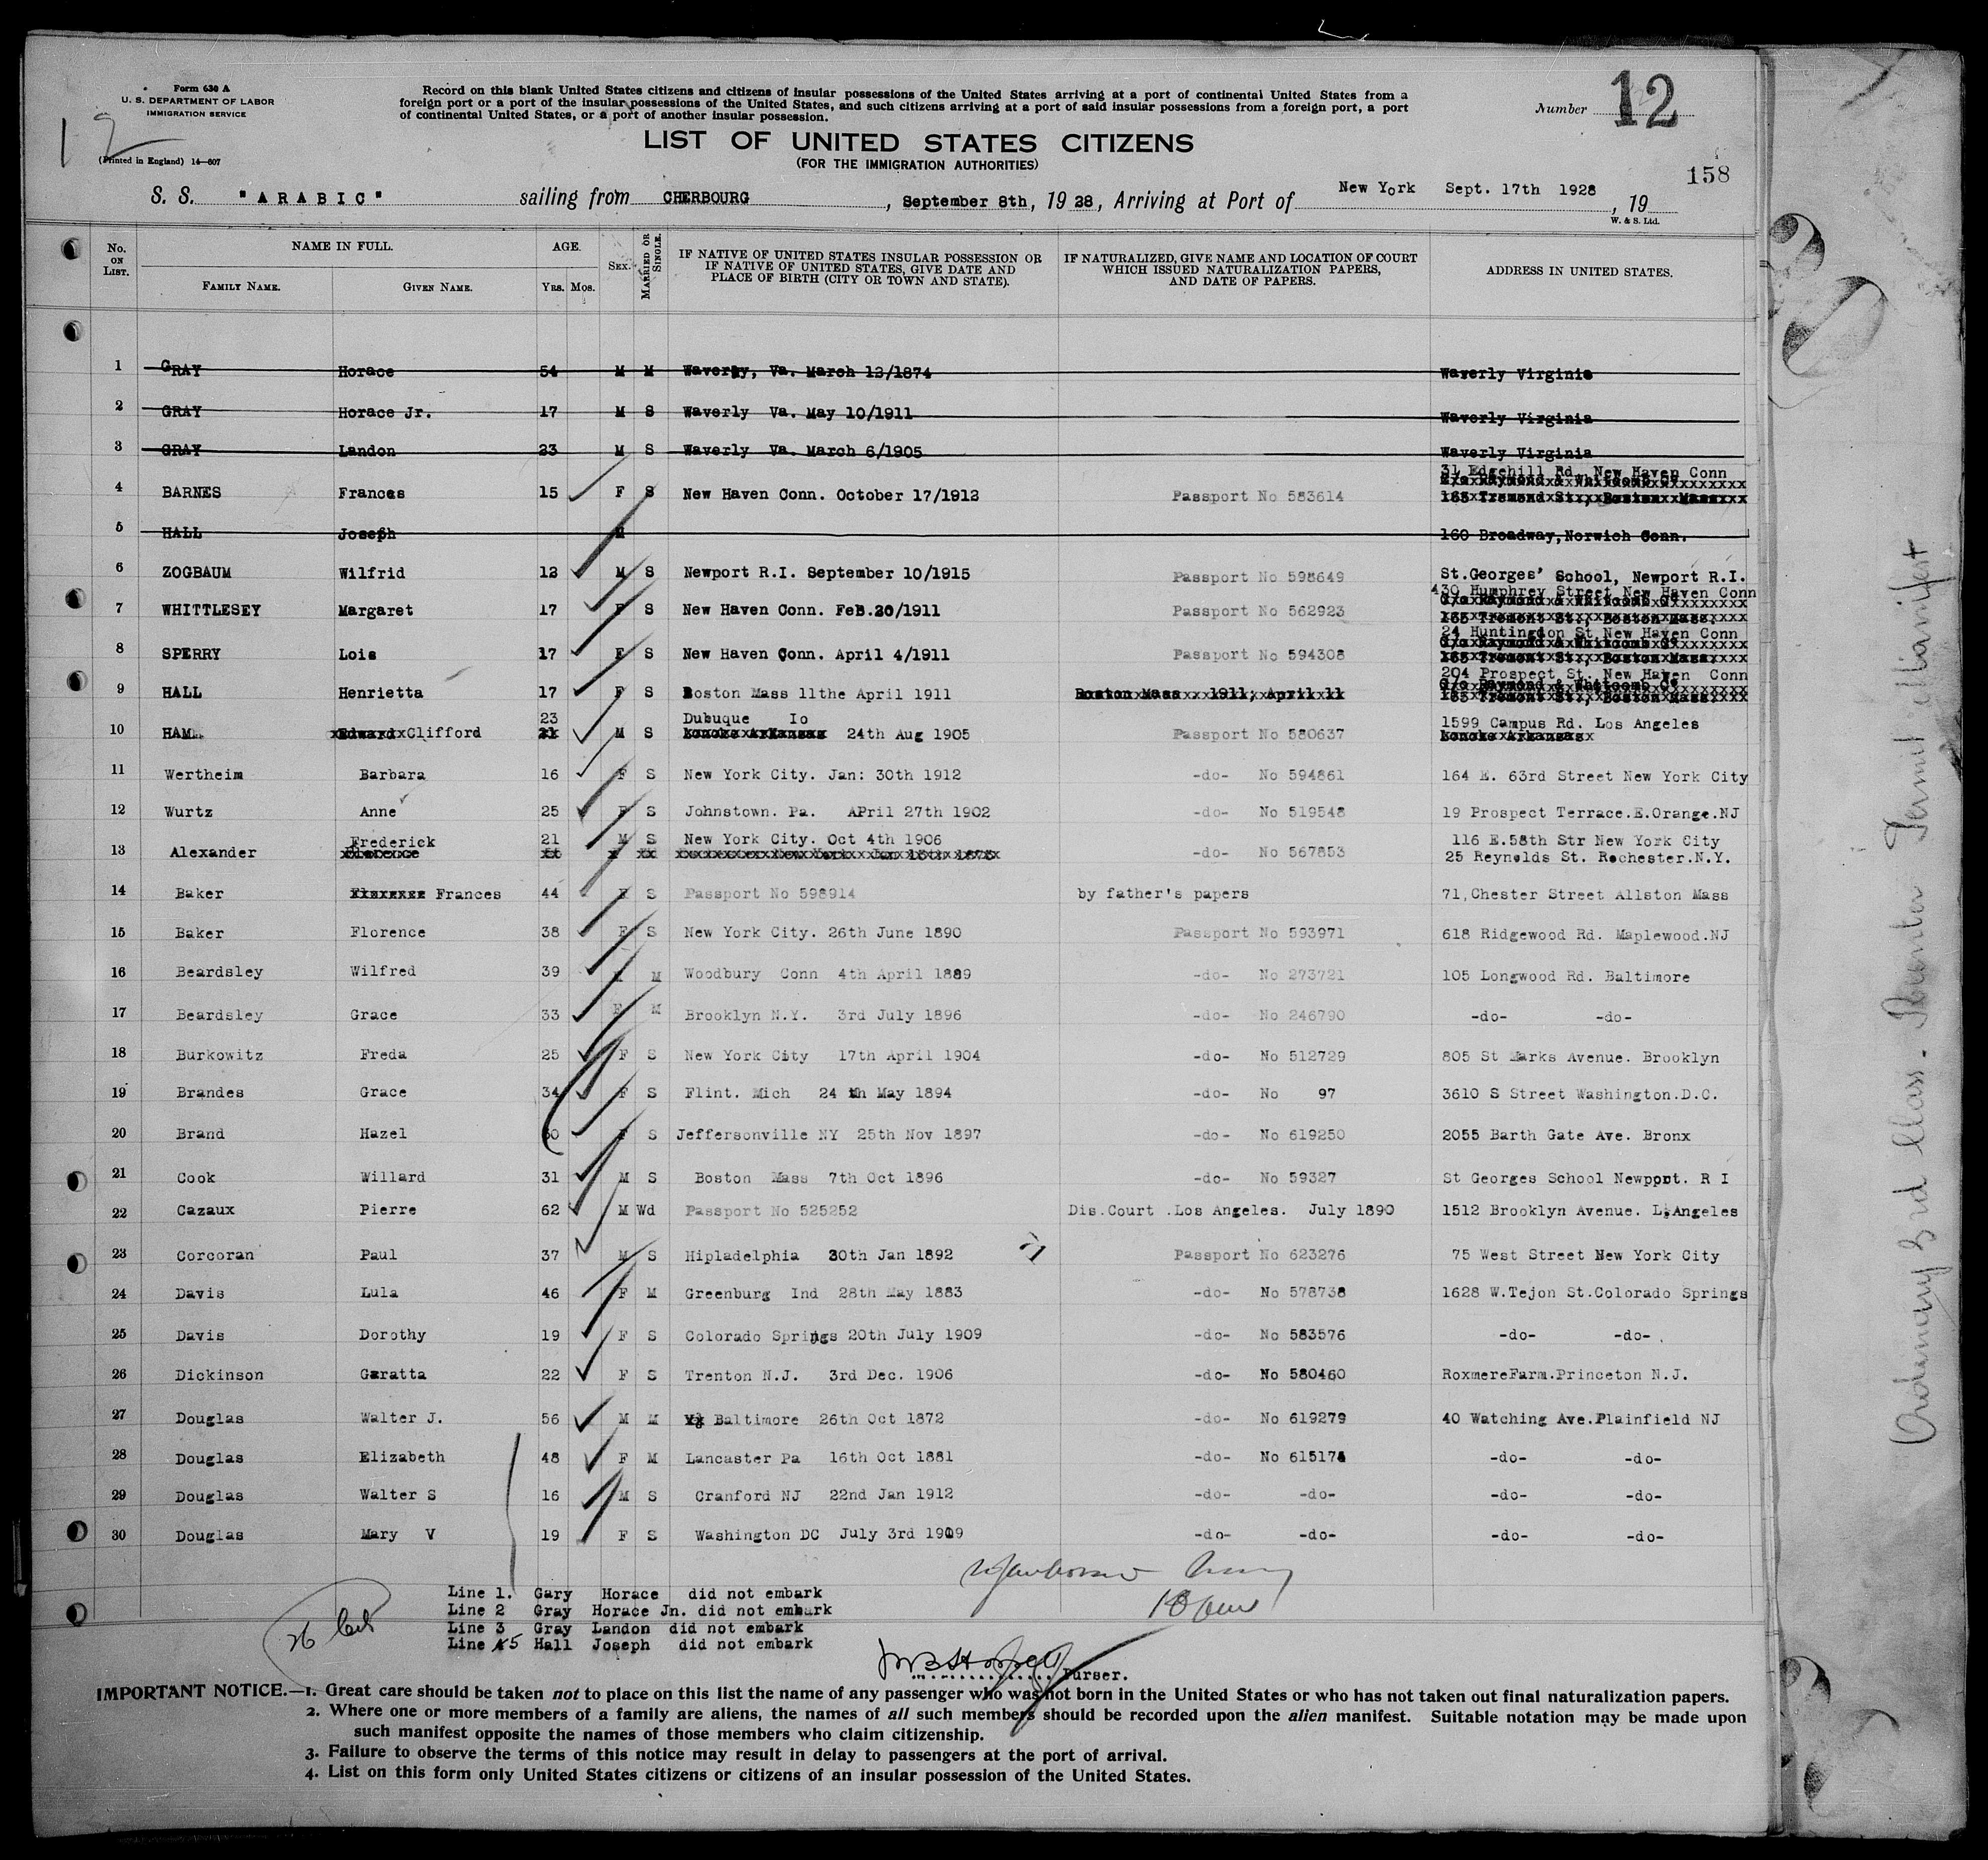 Form 630 A
U. S. DEPARTMENT OF LABOR
IMMIGRATION SERVICE
(Printed in England) 14—607
12
Record on this blank United States citizens and citizens of insular possessions of the United States arriving at a port of continental United States from a
foreign port or a port of the insular possessions of the United States, and such citizens arriving at a port of said insular possessions from a foreign port, a port
of continental United States, or a port of another insular possession.
Number 12
LIST OF UNITED STATES CITIZENS
(FOR THE IMMIGRATION AUTHORITIES)
158
S. S. "ARABIC" sailing from CHERBOURG, September 8th, 1928, Arriving at Port of New York Sept. 17th 1928, 19
W. & S. Ltd.
No. ON LIST. NAME IN FULL. FAMILY NAME. GIVEN NAME. AGE. YRS. MOS. SEX. MARRIED OR SINGLE. IF NATIVE OF UNITED STATES INSULAR POSSESSION OR IF NATIVE OF UNITED STATES, GIVE DATE AND PLACE OF BIRTH (CITY OR TOWN AND STATE). IF NATURALIZED, GIVE NAME AND LOCATION OF COURT WHICH ISSUED NATURALIZATION PAPERS, AND DATE OF PAPERS. ADDRESS IN UNITED STATES.
1 GRAY Horace 54 M M Waverly, Va. March 12/1874 Waverly Virginia
2 GRAY Horace Jr. 17 M S Waverly Va. May 10/1911 Waverly Virginia
3 GRAY Landon 23 M S Waverly Va. March 6/1905 Waverly Virginia
31 Edgehill Rd. New Haven Conn
c/o Raymond & Whitcomb Co
4 BARNES Frances 15 F S New Haven Conn. October 17/1912 Passport No 583614 165 Tremond St., Boston Mass
5 HALL Joseph M 160 Broadway, Norwich Conn.
6 ZOGBAUM Wilfrid 12 M S Newport R.I. September 10/1915 Passport No 598649 St.Georges' School, Newport R.I.
430 Humphrey Street New Haven Conn
C/o Raymond & Whitcomb Co
7 WHITTLESEY Margaret 17 F S New Haven Conn. FeB.20/1911 Passport No 562923 165 Tremont St., Boston Mass.
24 Huntingdon St New Haven Conn
C/o Raymond & Whitcomb Co
8 SPERRY Lois 17 F S New Haven Conn. April 4/1911 Passport No 594308 165 Tremont St., Boston Mass.
204 Prospect St. New Haven Conn
C/o Raymond & Whitcomb Co
9 HALL Henrietta 17 F S Boston Mass 11the April 1911 Boston Mass 1911, April 11 165 Tremont St., Boston Mass.
23 Dubuque Io 1599 Campus Rd. Los Angeles
10 HAM Edward Clifford 21 M S Lonoke Arkansas 24th Aug 1905 Passport No 580637 Lonoke Arkansas
11 Wertheim Barbara 16 F S New York City. Jan: 30th 1912 -do- No 594861 164 E. 63rd Street New York City
12 Wurtz Anne 25 F S Johnstown. Pa. APril 27th 1902 -do- No 519548 19 Prospect Terrace.E.Orange.NJ
Frederick 21 M S New York City. Oct 4th 1906 116 E.58th Str New York City
13 Alexander Florence -do- No 567853 25 Reynolds St. Rochester.N.Y.
14 Baker Frances 44 F S Passport No 598914 by father's papers 71,Chester Street Allston Mass
15 Baker Florence 38 F S New York City. 26th June 1890 Passport No 593971 618 Ridgewood Rd. Maplewood.NJ
16 Beardsley Wilfred 39 M Woodbury Conn 4th April 1889 -do- No 273721 105 Longwood Rd. Baltimore
17 Beardsley Grace 33 F M Brooklyn N.Y. 3rd July 1896 -do- No 246790 -do- -do-
18 Burkowitz Freda 25 F S New York City 17th April 1904 -do- No 512729 805 St Marks Avenue. Brooklyn
19 Brandes Grace 34 F S Flint. Mich 24 th May 1894 -do- No 97 3610 S Street Washington.D.C.
20 Brand Hazel 30 F S Jeffersonville NY 25th Nov 1897 -do- No 619250 2055 Barth Gate Ave. Bronx
21 Cook Willard 31 M S Boston Mass 7th Oct 1896 -do- No 59327 St Georges School Newport. R I
22 Cazaux Pierre 62 M Wd Passport No 525252 Dis.Court .Los Angeles. July 1890 1512 Brooklyn Avenue. L.Angeles
23 Corcoran Paul 37 M S Hipladelphia 30th Jan 1892 Passport No 623276 75 West Street New York City
24 Davis Lula 46 F M Greenburg Ind 28th May 1883 -do- No 578738 1628 W.Tejon St.Colorado Springs
25 Davis Dorothy 19 F S Colorado Springs 20th July 1909 -do- No 583576 -do- -do-
26 Dickinson Garatta 22 F S Trenton N.J. 3rd Dec. 1906 -do- No 580460 RoxmereFarm.Princeton N.J.
27 Douglas Walter J. 56 M M Baltimore 26th Oct 1872 -do- No 619279 40 Watching Ave.Plainfield NJ
28 Douglas Elizabeth 48 F M Lancaster Pa 16th Oct 1881 -do- No 615174 -do- -do-
29 Douglas Walter S 16 M S Cranford NJ 22nd Jan 1912 -do- -do- -do- -do-
30 Douglas Mary V 19 F S Washington DC July 3rd 1909 -do- -do- -do- -do-
Line 1. Gary Horace did not embark
Line 2 Gray Horace Jn. did not embark
Line 3 Gray Landon did not embark
Line 5 Hall Joseph did not embark
26
Purser.
IMPORTANT NOTICE.—1. Great care should be taken not to place on this list the name of any passenger who was not born in the United States or who has not taken out final naturalization papers.
2. Where one or more members of a family are aliens, the names of all such members should be recorded upon the alien manifest. Suitable notation may be made upon
such manifest opposite the names of those members who claim citizenship.
3. Failure to observe the terms of this notice may result in delay to passengers at the port of arrival.
4. List on this form only United States citizens or citizens of an insular possession of the United States.
Ordinary 3rd Class - Reenter Permit Manifest